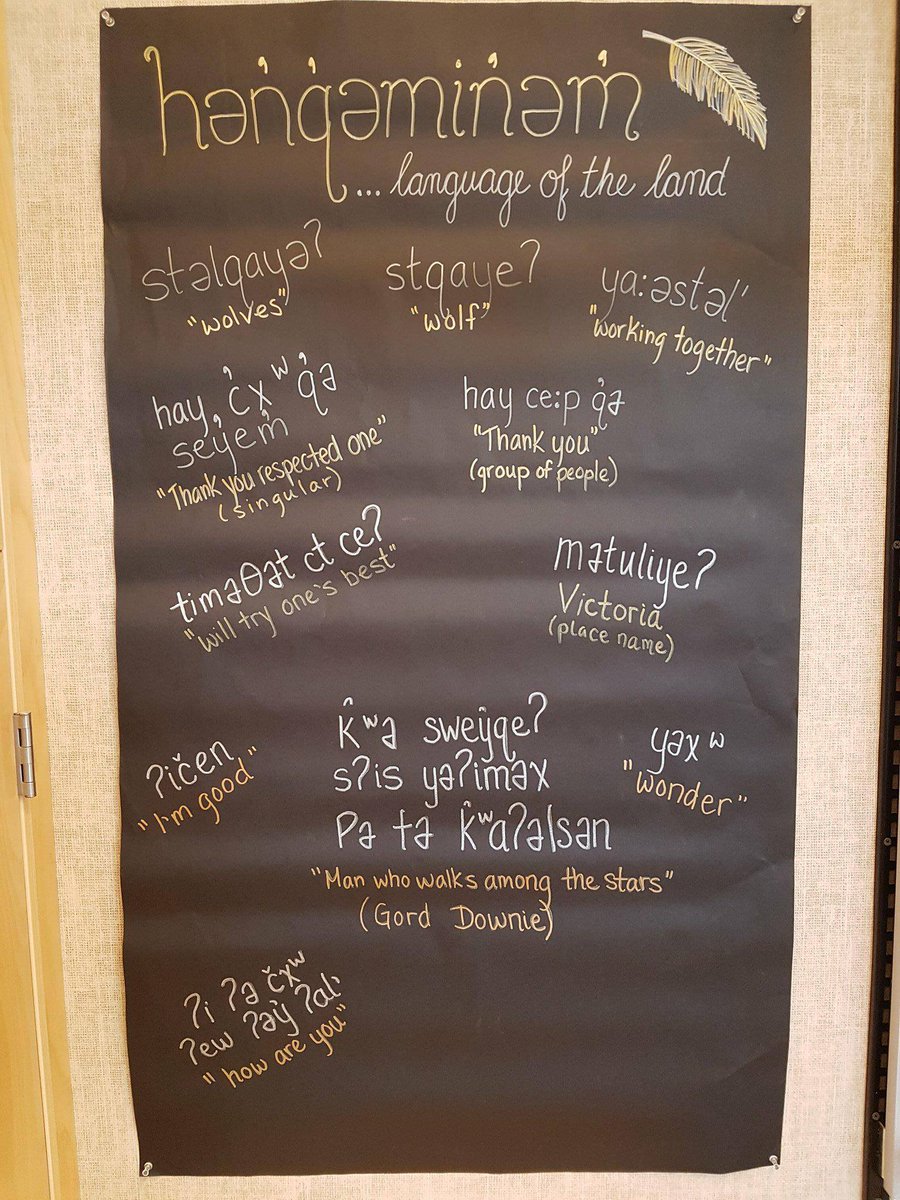 hən̓q̓əmin̓əm̓
... language of the land
stəlqayəʔ
"wolves"
stqayeʔ
"wolf"
ya:əstəl̓
"working together"
hay, č̓xʷ q̓ə
sey̓em̓
"Thank you respected one"
(singular)
hay ce:p q̓ə
"Thank you"
(group of people)
timəθət ct ceʔ
"will try one's best"
mətuliyeʔ
Victoria
(place name)
ʔičen
"I'm good"
k̂ʷə sweŷqeʔ
sʔis yəʔiməx
Pə tə k̂ʷaʔəlsən
"Man who walks among the stars"
(Gord Downie)
yəxʷ
"wonder"
ʔi ʔə čxʷ
ʔew ʔəy̓ ʔal̓
"how are you"